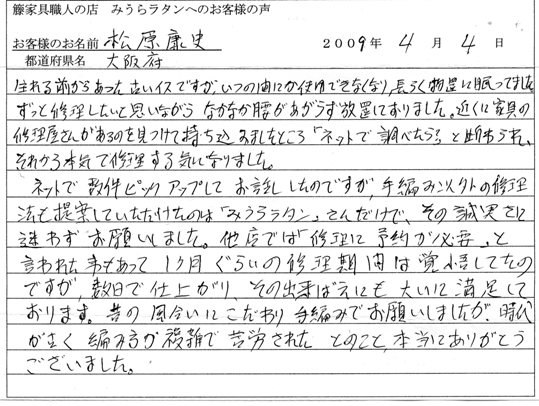 籐家具職人の店 みうらラタンへのお客様の声
お客様のお名前 松原康史 2009年 4月 4日
都道府県名 大阪府
生れる前からあった古いイスですがいつの間にか使用できなくなり、長らく物置に眠ってました。
ずっと修理したいと思いながら なかなか腰があがらず放置しておりました。近くに家具の
修理屋さんがあるのを見つけて持ち込みましたところ「ネットで調べたら?」と断わられ、
それから本気で修理する気になりました。
ネットで数件ピックアップして お話ししたのですが、手編み以外の修理
法を提案していただけたのは「みうらラタン」さんだけで、その誠実さに
迷わずお願いしました。他店では「修理に予約が必要」と
言われた事もあって1ヶ月ぐらいの修理期間は覚悟してたの
ですが、数日で仕上がり、その出来ばえにも大いに満足して
おります。昔の風合いにこだわり手編みでお願いしましたが、時代
が古く 編み方が複雑で苦労された とのこと、本当にありがとう
ございました。